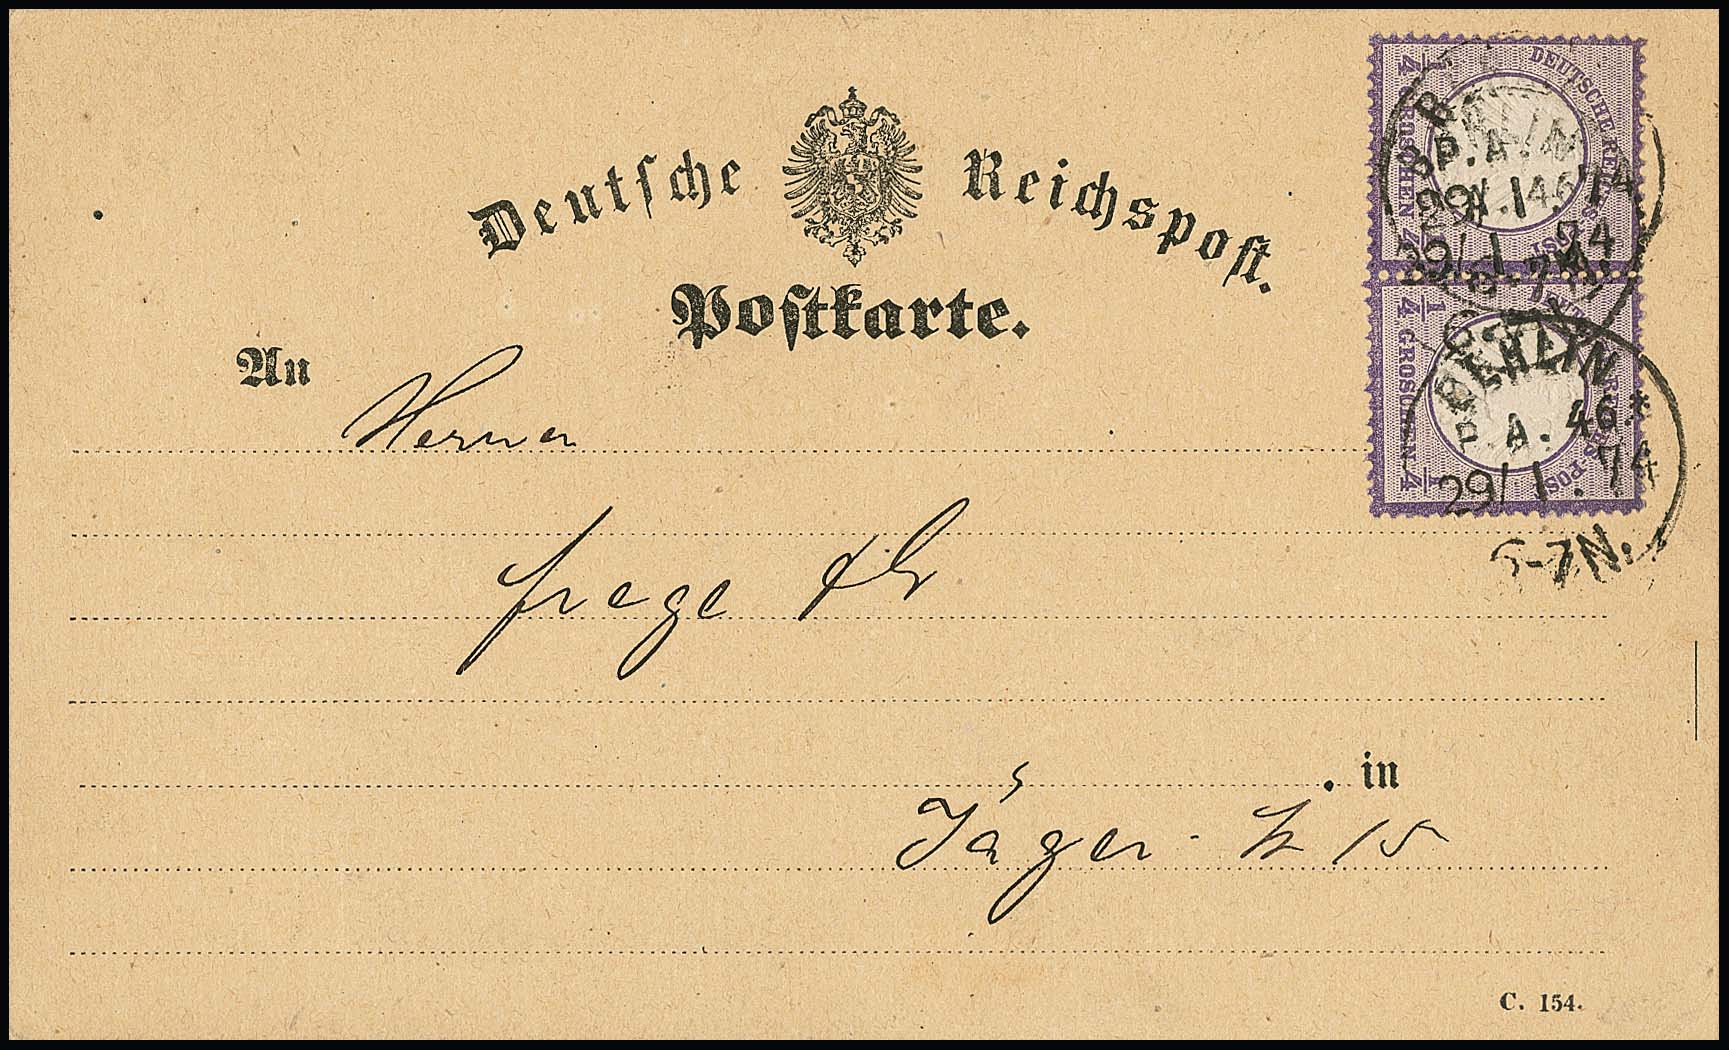 Deutsche Reichspost.
Postkarte.
An
Herrn
Frege
. in
Jäger 15
C. 154.
¼ GROSCHEN ¼
DEUTSCHE REICHS-POST
¼ GROSCHEN ¼
BERLIN
P.A. 46.*
29/1.74
6-7N.